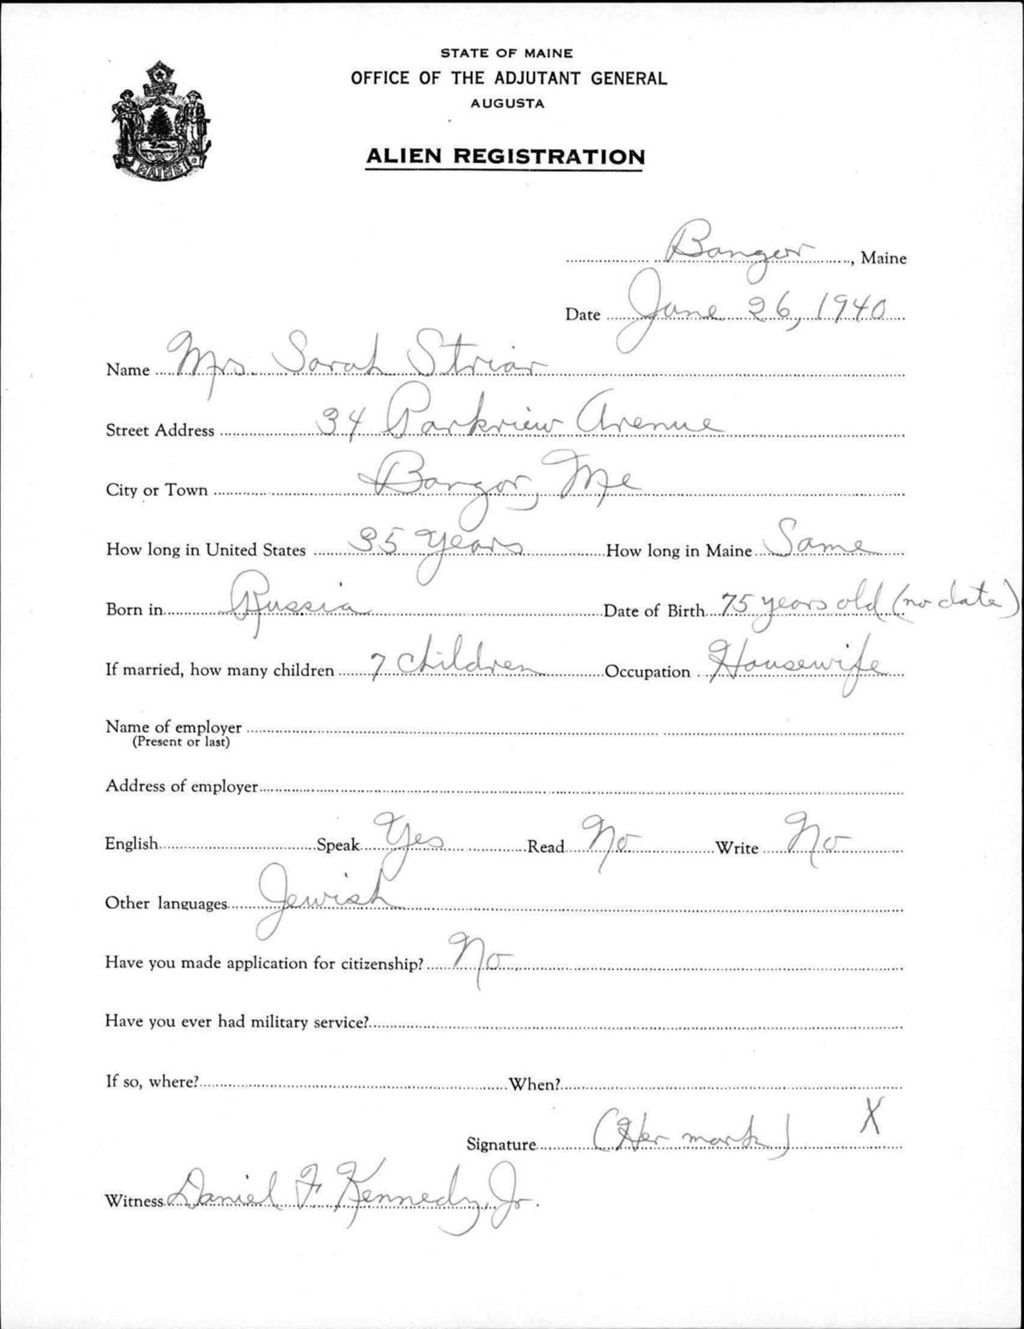 STATE OF MAINE
OFFICE OF THE ADJUTANT GENERAL
AUGUSTA
ALIEN REGISTRATION
MAINE
Bangor, Maine
Date June 26, 1940
Name Mrs. Sarah Striar
Street Address 34 Parkview Avenue
City or Town Bangor, Me
How long in United States 35 years How long in Maine Same
Born in Russia Date of Birth 75 years old (no date)
If married, how many children 7 children Occupation Housewife
Name of employer
(Present or last)
Address of employer
English Speak Yes Read No Write No
Other languages Jewish
Have you made application for citizenship? No
Have you ever had military service?
If so, where? When?
Signature (Her mark) X
Witness Daniel F Kennedy, Jr.